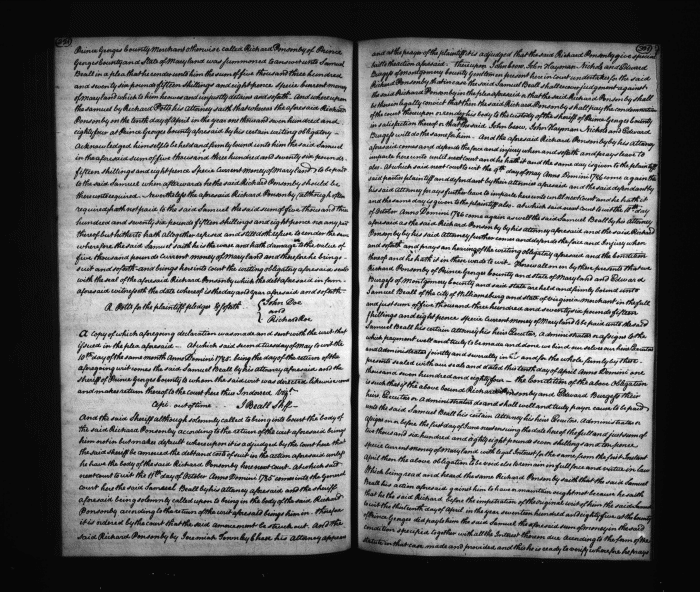 Prince Georges County Merchant otherwise called Richard Ponsonby of Prince
Georges County and State of Maryland was summoned to answer unto Samuel
Beall in a plea that he render unto him the sum of five thousand three hundred
and seventy six pounds fifteen shillings and eight pence specie current money
of Maryland which to him he owes and unjustly detains and so forth. And whereupon
the said Samuel by Richard Potts his Attorney saith that whereas the aforesaid Richard
Ponsonby on the tenth day of April in the year one thousand seven hundred and
eighty four at Prince Georges County aforesaid by his certain writing obligatory
Acknowledged himself to be held and firmly bound unto him the said Samuel
in the aforesaid sum of five thousand three hundred and seventy six pounds
fifteen shillings and eight pence specie current money of Maryland to be paid
to the said Samuel when afterwards he the said Richard Ponsonby should be
thereunto required. Nevertheless the aforesaid Richard Ponsonby (although often
required) hath not paid to the said Samuel the said sum of five thousand three
hundred and seventy six pounds fifteen shillings and eight pence or any part
thereof but hitherto hath altogether refused and still doth refuse to render the same
wherefore the said Samuel saith he is the worse and hath damage to the value of
five thousand pounds current money of Maryland and therefore he brings
suit and so forth and brings here into Court the writing obligatory aforesaid
with the seal of the aforesaid Richard Ponsonby which the debt aforesaid in form
aforesaid witnesseth the date whereof is the day and year aforesaid and so forth
R. Potts for the plaintiff pledges & so forth John Doe
and
Richard Roe
A Copy of which aforegoing declaration was made and sent with the writ that
issued in the plea aforesaid. At which said Tuesday of May to wit the
10th day of the same month Anno Domini 1785 being the day of the return of the
aforegoing writ comes the said Samuel Beall by his attorney aforesaid and the
Sheriff of Prince Georges County to whom the said writ was directed likewise comes
and makes return thereof to the Court here thus Indorsed Viz.
Cepi out of time J Beall Shff.
And the said Sheriff although solemnly called to bring into Court the body of
the said Richard Ponsonby according to the return of the writ aforesaid brings
him not in but makes default whereupon it is adjudged by the Court here that
the said Sheriff be amerced the debt and cost of suit in the action aforesaid unless
he have the body of the said Richard Ponsonby here next Court. At which said
next Court to wit the 11th day of October Anno Domini 1785 comes into the General
Court here the said Samuel Beall by his attorney aforesaid and the sheriff
aforesaid being solemnly called upon to bring in the body of the said Richard
Ponsonby according to the return of the writ aforesaid brings him in. Therefore
it is ordered by the Court that the said amercement be struck out. And the
said Richard Ponsonby by Jeremiah Townley Chase his Attorney appears
and at the prayer of the plaintiff it is adjudged that the said Richard Ponsonby give special
bail to the action aforesaid. Thereupon John Hayman Nichols and Edward
Burgess of Montgomery County Gentlemen present here in Court undertake for the said
Richard Ponsonby that in case the said Samuel Beall shall recover judgment against
the said Richard Ponsonby in the plea
be thereon legally convict that then the said Richard Ponsonby shall pay the condemnation
of the Court thereupon or render his body to the custody of the sheriff of Prince Georges County
in satisfaction thereof or that the said John Hayman Nichols and Edward
Burgess will do the same for him. And the aforesaid Richard Ponsonby by his attorney
aforesaid comes and defends the force and injury when and so forth and prays leave to
imparle hereunto until next Court and he hath it and the same day is given to the plaintiff
also. At which said next Court to wit the 9th day of May Anno Domini 1786 come again the
said parties plaintiff and defendant by their attornies aforesaid and the said defendant by
his said attorney prays further leave to imparle hereunto until next Court and he hath it
and the same day is given to the plaintiff also. At which said next Court to wit the 10th day
of October Anno Domini 1786 come again as well the said Samuel Beall by his attorney
aforesaid as the said Richard Ponsonby by his attorney aforesaid and the said Richard
Ponsonby by his said attorney further comes and defends the force and Injury when
and so forth and prays an hearing of the writing obligatory aforesaid and the Condition
thereof and he hath it in these words to wit. Know all men by these presents that we
Richard Ponsonby of Prince Georges County and State of Maryland and Edward
Burgess of Montgomery County and said state are held and firmly bound unto
Samuel Beall of the City of Williamsburg and State of Virginia Merchant in the full
and just sum of five thousand three hundred and seventy six pounds fifteen
shillings and eight pence specie current money of Maryland to be paid unto the said
Samuel Beall his certain attorney his heirs Executors Administrators or assigns to the
which payment well and truly to be made and done we bind ourselves our heirs Executors
and Administrators jointly and severally in and for the whole firmly by these
presents sealed with our seals and dated this tenth day of April Anno Domini one
thousand seven hundred and eighty four. The Condition of the above Obligation
is such that if the above bound Richard Ponsonby and Edward Burgess their
heirs Executors or Administrators do and shall well and truly pay or cause to be paid
unto the said Samuel Beall his certain Attorney his heirs Executors Administrators or
assigns on or before the first day of June next ensuing the date hereof the full and just sum of
two thousand six hundred and eighty eight pounds seven shillings and ten pence
specie current money of Maryland with legal Interest for the same from the first Instant
April then the above obligation to be void else to remain in full force and virtue in law
Which being read and heard the said Richard Ponsonby saith that the said Samuel
Beall his action aforesaid against him to have or maintain ought not because he saith
that he the said Richard before the impetration of the original writ of him the said Samuel
to wit the thirteenth day of April in the year seventeen hundred and eighty five at the County
of Prince Georges did pay to him the said Samuel the aforesaid sum of money in the said
Condition specified together with all the Interest thereon due according to the form of the
statute in that case made and provided and this he is ready to verify wherefore he prays